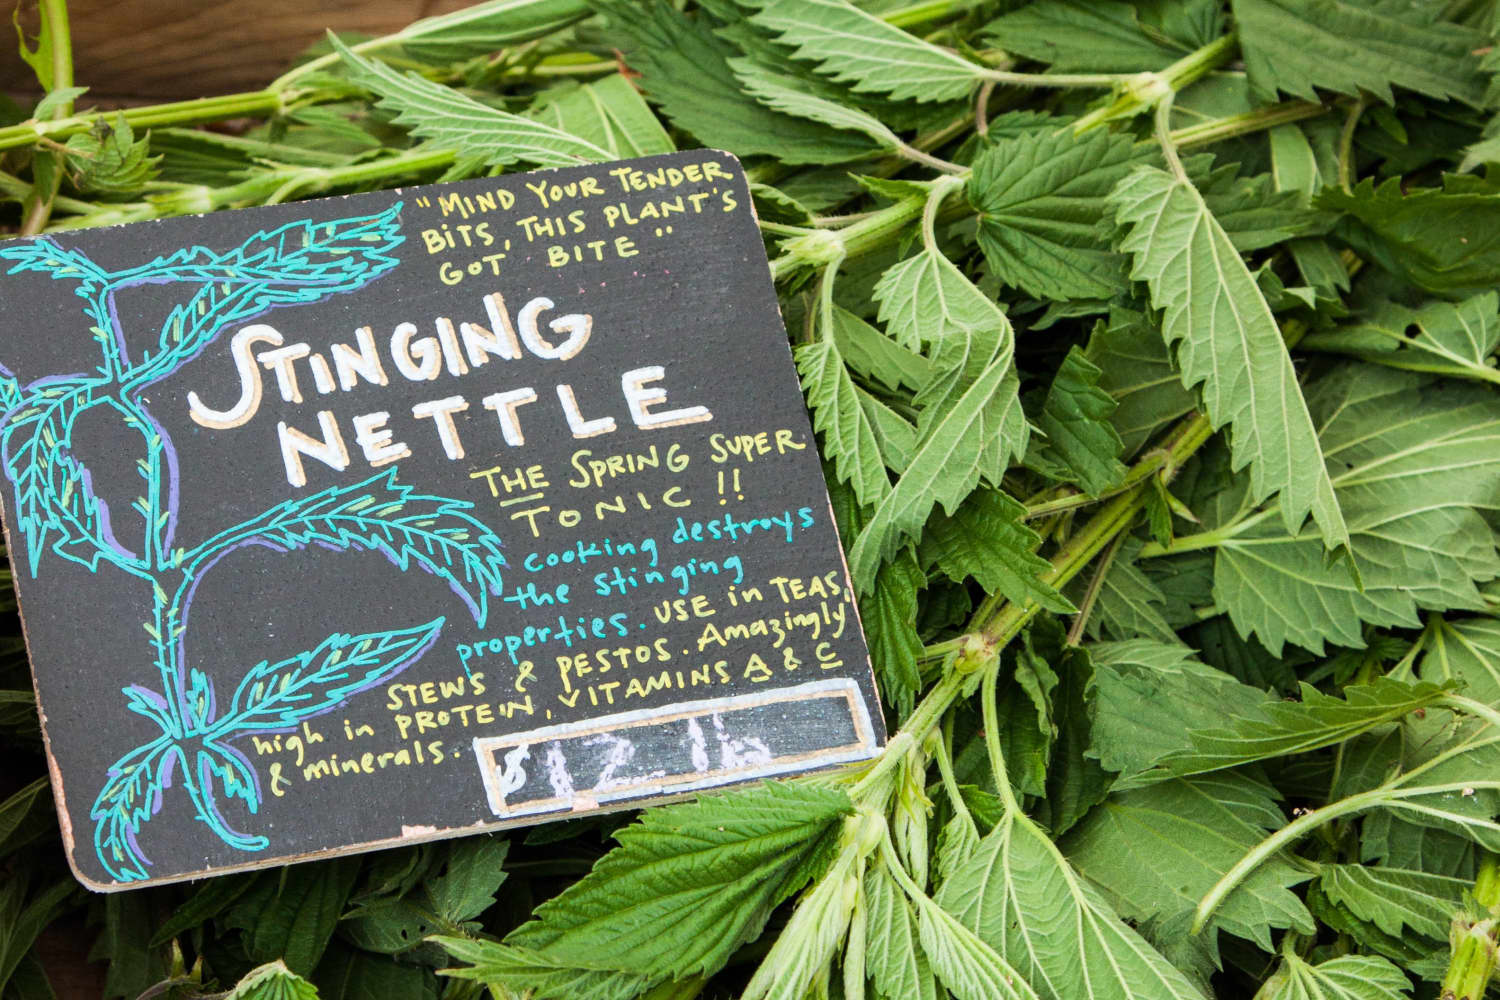 "MIND YOUR TENDER
BITS, THIS PLANT'S
GOT BITE"
STINGING
NETTLE
THE SPRING SUPER
TONIC !!
cooking destroys
the stinging
properties. USE in TEAS,
STEWS & PESTOS. Amazingly
high in PROTEIN, VITAMINS A & C
& minerals.
$12 lb